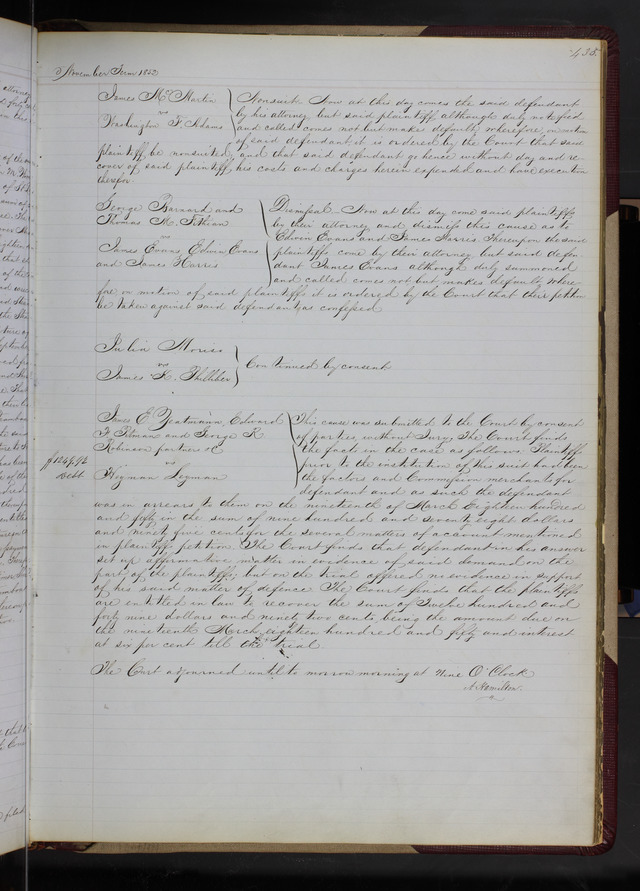 435
November Term 1852
James McMartin
vs
Washington F. Adams
Nonsuit Now at this day comes the said defendant
by his attorney but said plaintiff although duly notified
and called comes not but makes default, wherefore, on motion
of said defendant it is ordered by the Court that said
plaintiff be nonsuited, and that said defendant go hence without day and re-
cover of said plaintiff his costs and charges herein expended and have execution
therefor.
George Barnard and
Thomas M.
James Evans Edwin Evans
and James Harris
Dismissal. Now at this day come said plaintiffs
by their attorney and dismiss this cause as to
Edwin Evans and James Harris. Thereupon the said
plaintiffs come by their attorney but said defen-
dant James Evans although duly summoned
and called comes not but makes default, where-
fore on motion of said plaintiffs it is ordered by the Court that their petition
be taken against said defendant as confessed
Julia Moriss
vs
James K.
Continued by consent
James E. Yeatmann, Edward
and George R
Robinson partners &c
vs
Hegman Legman
$1249.92
Debt
This cause was submitted to the Court by consent
of parties, without Jury. The Court finds
the facts in the case as follows. Plaintiffs
prior to the institution of this suit had been
the factors and Commission merchants for
defendant and as such the defendant
was in arrears to them on the nineteenth of March Eighteen hundred
and fifty in the sum of nine hundred and seventy eight dollars
and ninety five cents for the several matters of account mentioned
in plaintiffs petition. The Court finds that defendant in his answer
set up affirmative matter in evidence of said demand on the
part of the plaintiffs; but on the trial offered no evidence in support
of his said matter of defence The Court finds that the plaintiffs
are entitled in law to recover the sum of Twelve hundred and
forty nine dollars and ninety two cents being the amount due on
the nineteenth March, eighteen hundred and fifty and interest
at six per cent till the trial
The Court adjourned until to morrow morning at nine O'Clock
A. Hamilton.